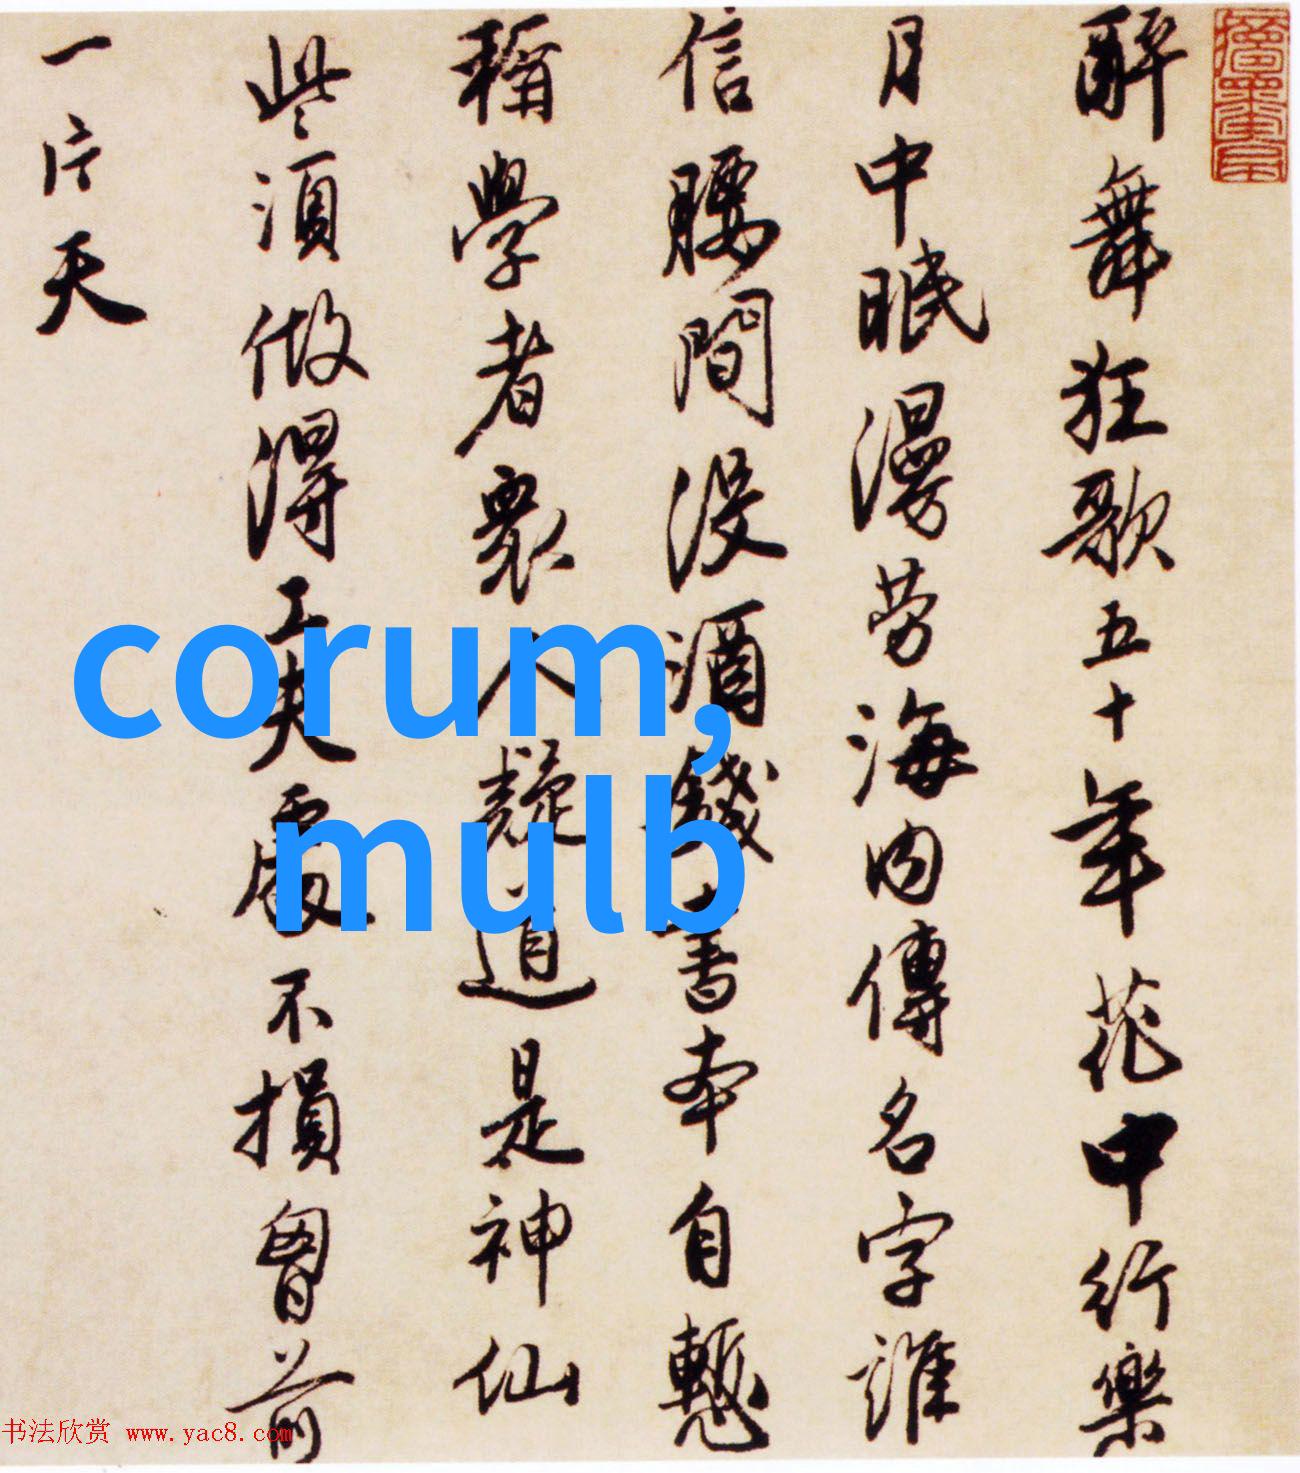 醉舞狂歌五十年花中行樂
月中眠漫劳海内傳名字誰
信腰間没酒錢書本自慙
稱學者衆人疑道是神仙
些須做得工夫處不損胷前
一片天
corum,
mulb
书法欣赏 www.yac8.com